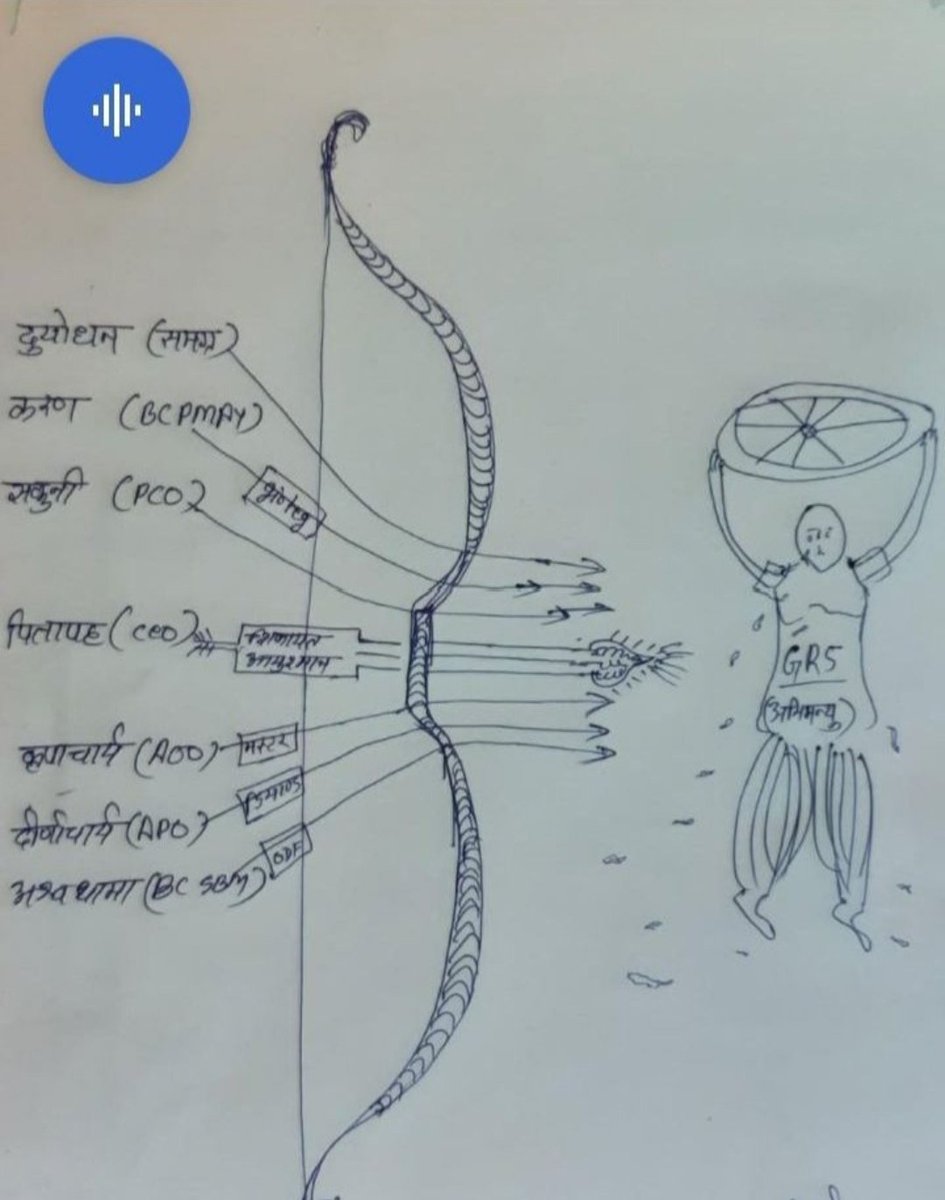 दुयोधन (समग्र)
करण (BCPMAY)
सकुनी (PCO)
पितापह (CEO)
शिकायत
आयुष्मान
कृपाचार्य (AOO) मस्टर
(APO) डिमाण्ड
अश्वथामा (BC SBM) ODF
GRS
(अभिमन्यु)